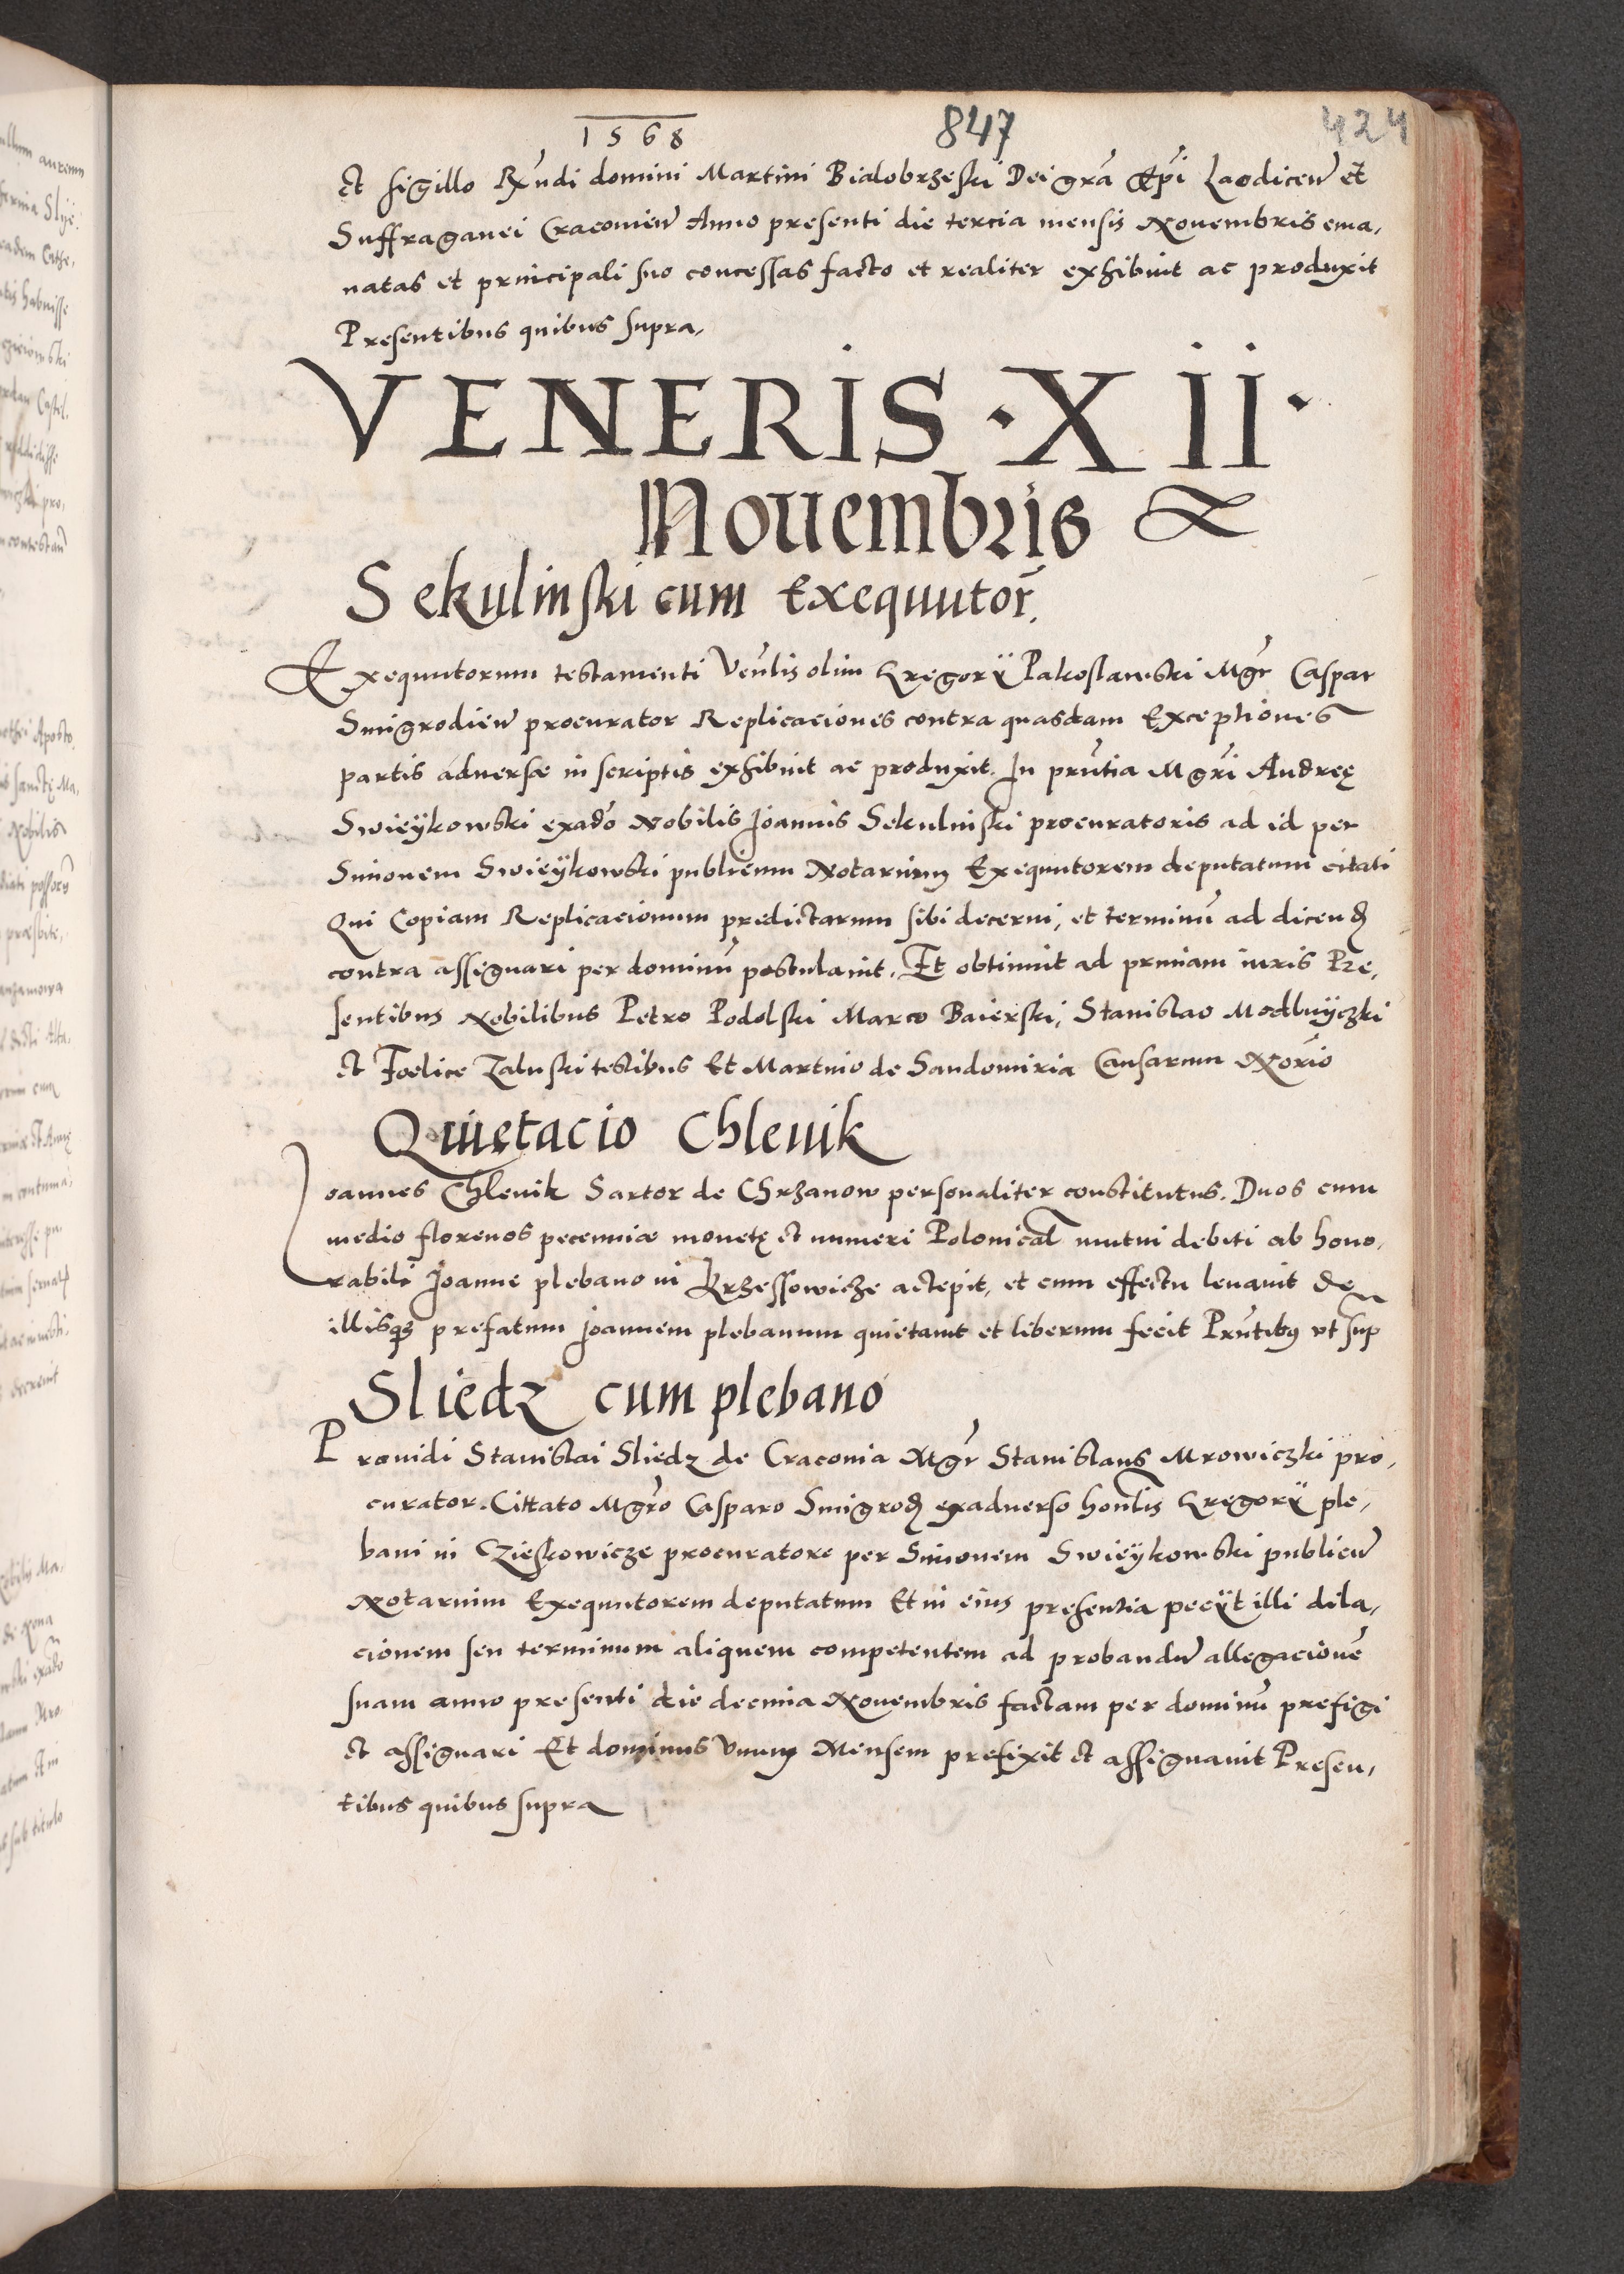 1568 847 424
et sigillo Rx̄ndi domini Martini Bialobrzeski Dei grã Epĩ Laodiceñ et
Suffraganei Cracovieñ Anno presenti die tercia mensis Novembris ema,
natas et principali suo concessas facto et realiter exhibuit ac produxit
Presentibus quibus supra,
VENERIS · XII ·
Nouembris
Sekulinski cum Exequutor̃.
Exequutorum testamenti Veñlis olim Gregorÿ Pakoslawski Mgr̃ Caspar
Smigrodieñ procurator Replicaciones contra quasdam Exceptiones
partis adversæ in scriptis exhibuit ac produxit. In prñtia Mgr̃i Andreę
Swieÿkowski exadṽo Nobilis Joannis Sekulinski procuratoris ad id per
Simonem Swieÿkowski publicum Notarium Exequutorem deputatum citati
Qui Copiam Replicacionum predictarum sibi decerni, et terminũ ad dicend
contra assignari per dominũ postulauit. Et obtinuit ad primam iuris Pre,
sentibus Nobilibus Petro Podolski Marco Baierski, Stanislao Modlniÿczki
et Foelice Zaluski testibus Et Martino de Sandomiria Causarum Norĩo
Quietacio Chlevik
Joannes Chlevik Sartor de Chrzanow personaliter constitutus. Duos cum
medio florenos pecenniæ monetę et numeri Polonical mutui debiti ab hono,
rabili Joanne plebano in Krzessowicze actepit, et cum effectu leuauit de
illisqʒ prefatum Joannem plebanum quietauit et liberum fecit Prñtibꝰ vt sup
Sliedz cum plebano
Providi Stanislai Sliedz de Cracovia Mgr̃ Stanislaus Mrowiczki pro,
curator. Cittato Mgr̃o Casparo Smigrod exadverso hoñlis Gregorÿ ple,
bani in Czieskowicze procuratore per Simonem Swieÿkowski publicũ
Notarium Exequutorem deputatum Et in eius presentia pecÿt illi dila,
cionem seu terminum aliquem competentem ad probandũ allegacionẽ
suam anno presenti die decima Novembris factam per dominũ prefigi
et assignari Et dominus Vnum Mensem prefixit et assignauit Presen,
tibus quibus supra